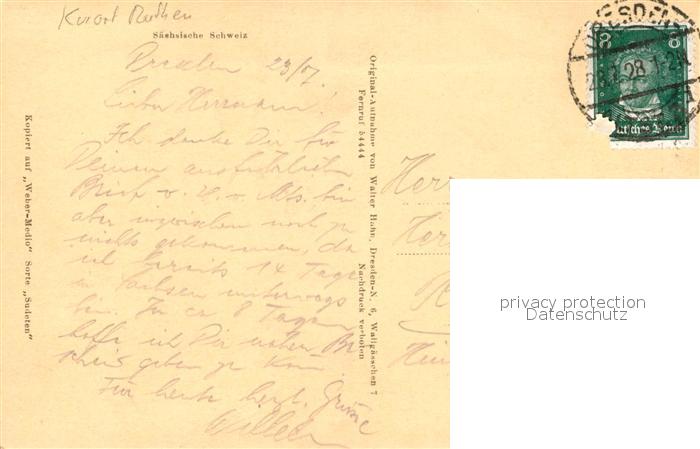 Kurort Rathen
Sächsische Schweiz
Dresden 23/7.
Lieber Hermann!
Ich danke Dir für
Deinen ausführlichen
Brief v. d. Mts. bin
aber inzwischen noch zu
nichts gekommen, da
ich bereits 14 Tage
in Sachsen unterwegs
bin. In ca 8 Tagen
hoffe ich Dir nähern Be-
scheid geben zu können.
Für heute herzl. Grüsse
Kopiert auf „Weber-Medio" Sorte „Sudeten"
Original-Aufnahme von Walter Hahn, Dresden-N. 6, Wallgässchen 7
Fernruf 54444
Nachdruck verboten
DRESDEN
28 1-2
8 8
Deutsches Reich
Herr
Her
Hein
privacy protection
Datenschutz